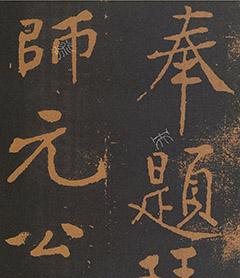 奉題
師元公